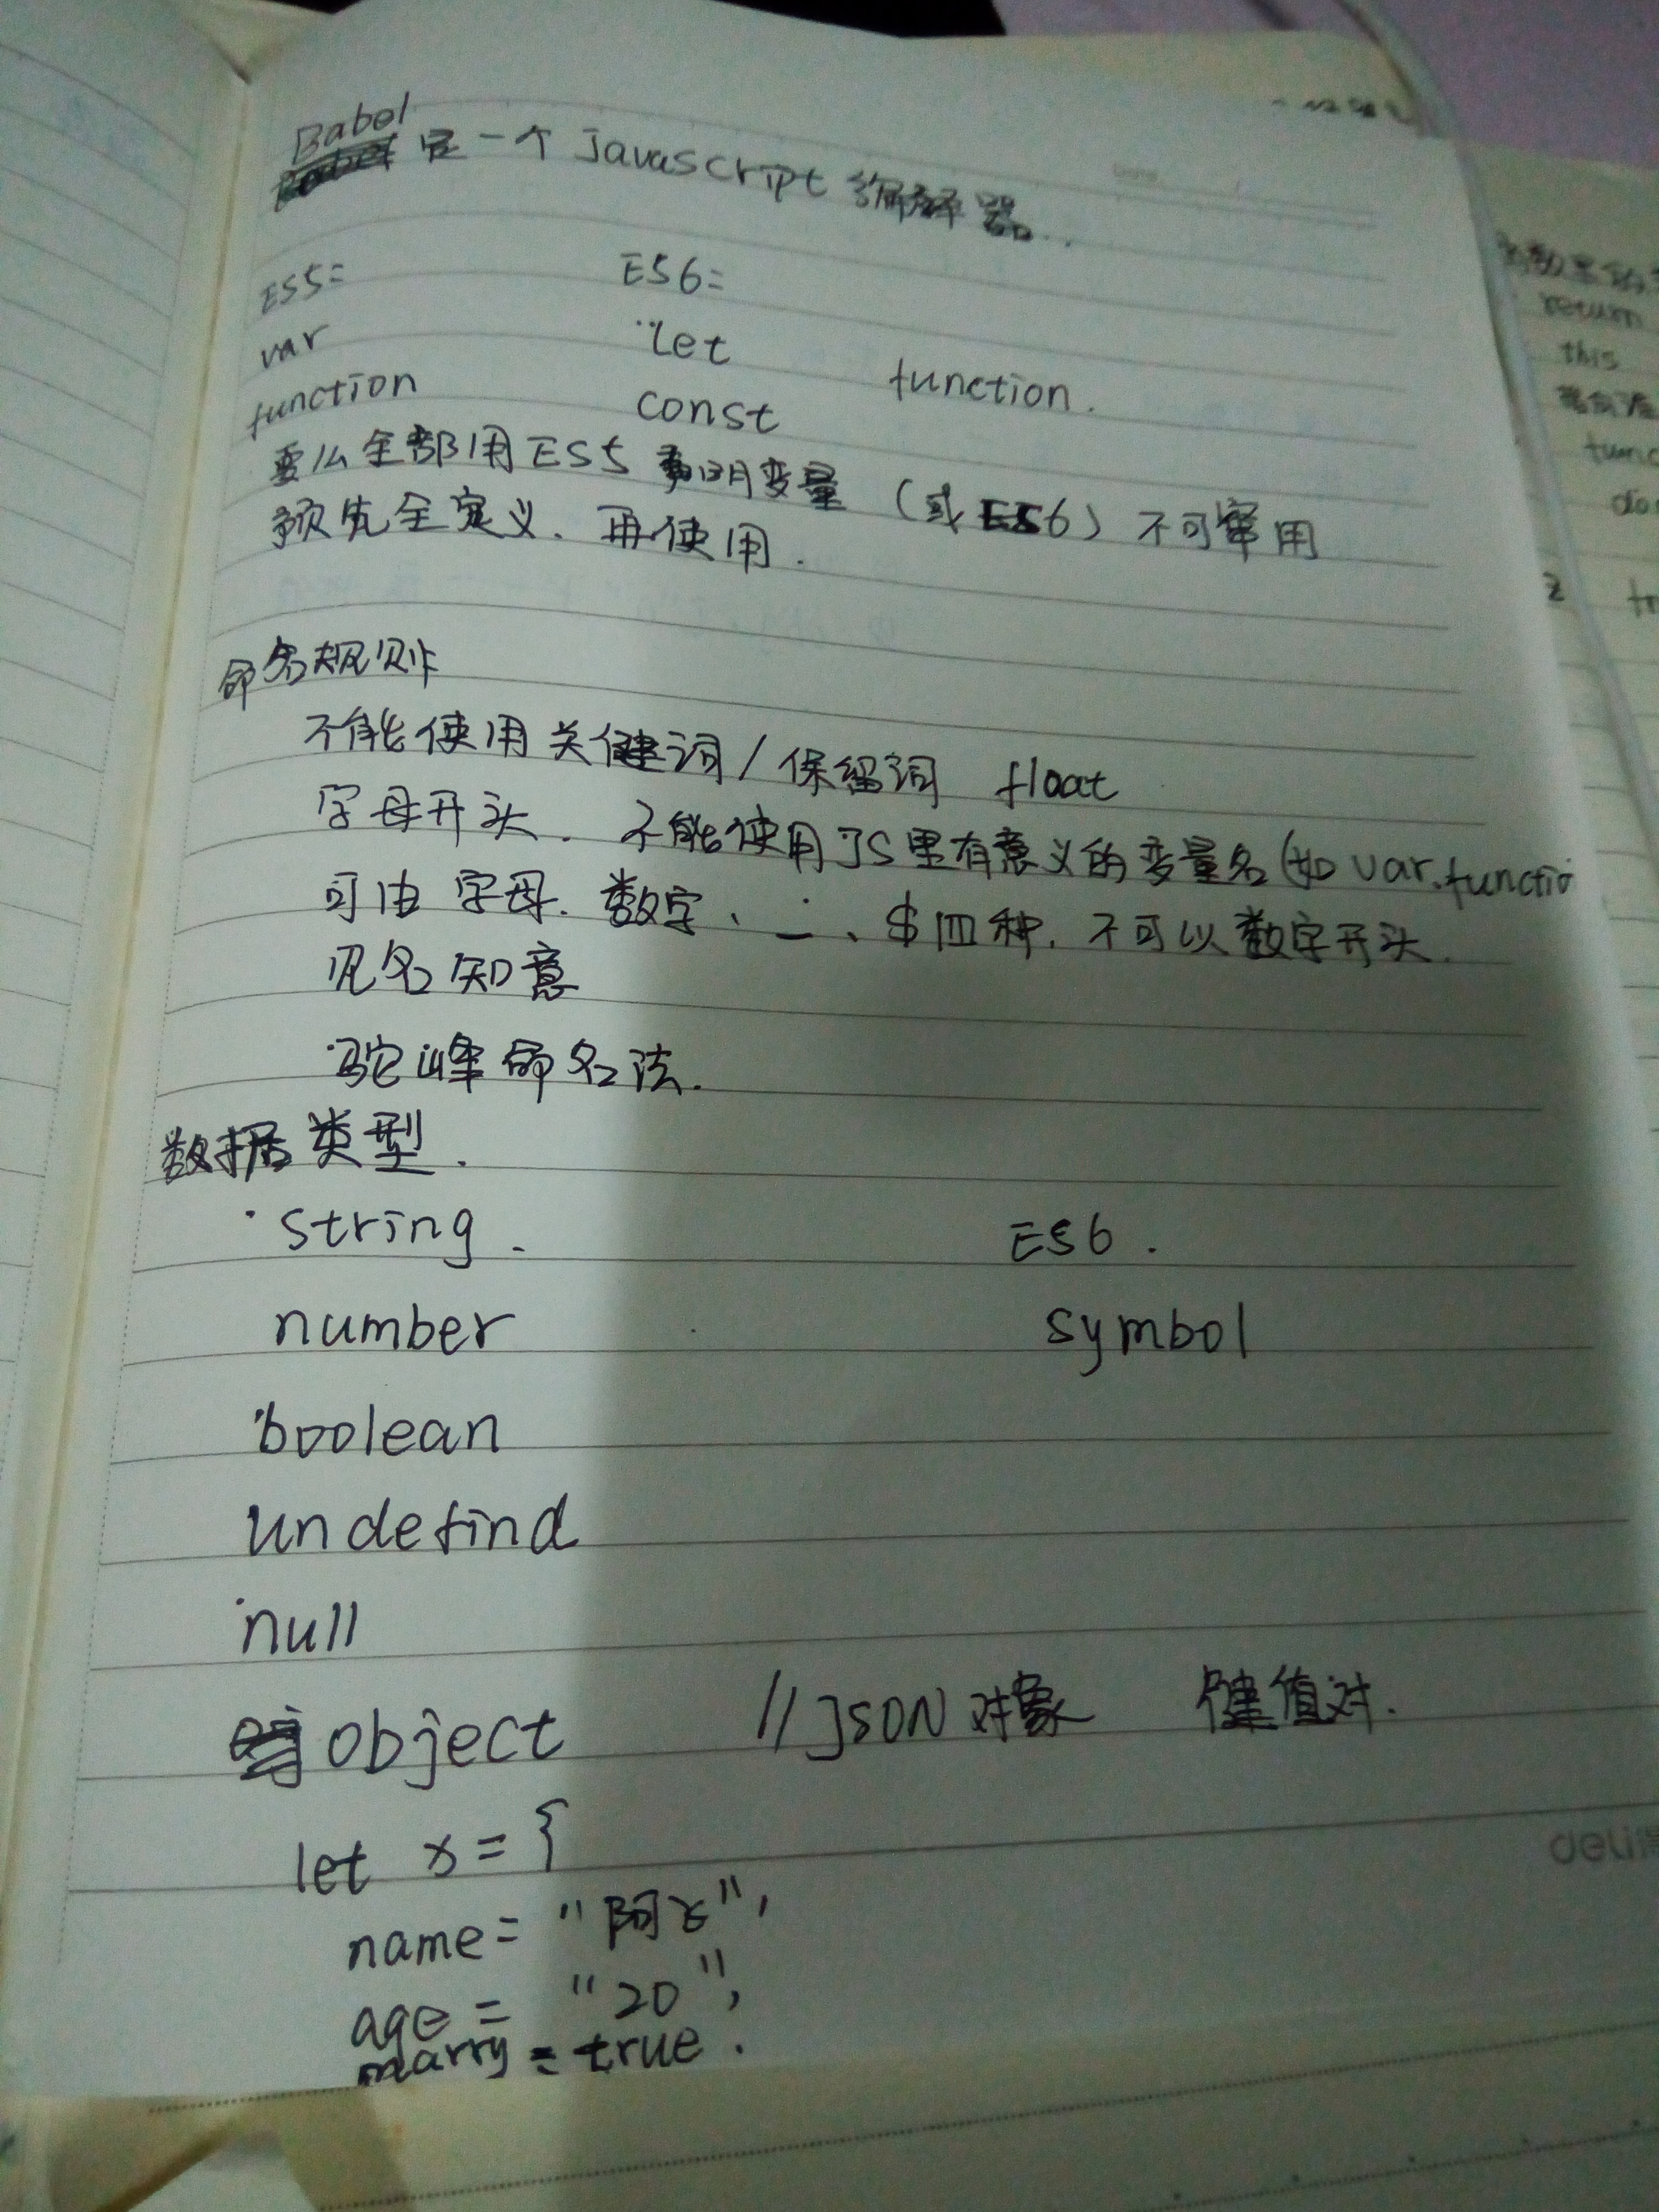 Babel
是一个 Javascript 编解器..
ES5: ES6:
var let
function const function.
要么全部用ES5 声明变量 (或ES6) 不可串用
预先全定义、再使用.
命名规则
不能使用关健词/保留词 float
字母开头. 不能使用JS里有意义的变量名(如var.functio
可由 字母、数字、_、$四种. 不可以数字开头.
见名知意
驼峰命名法.
数据类型.
string. ES6.
number symbol
boolean
undefind
null
object //JSON对象 健值对.
let x = {
name: "阿",
age: "20",
marry: true.
deli
return
this